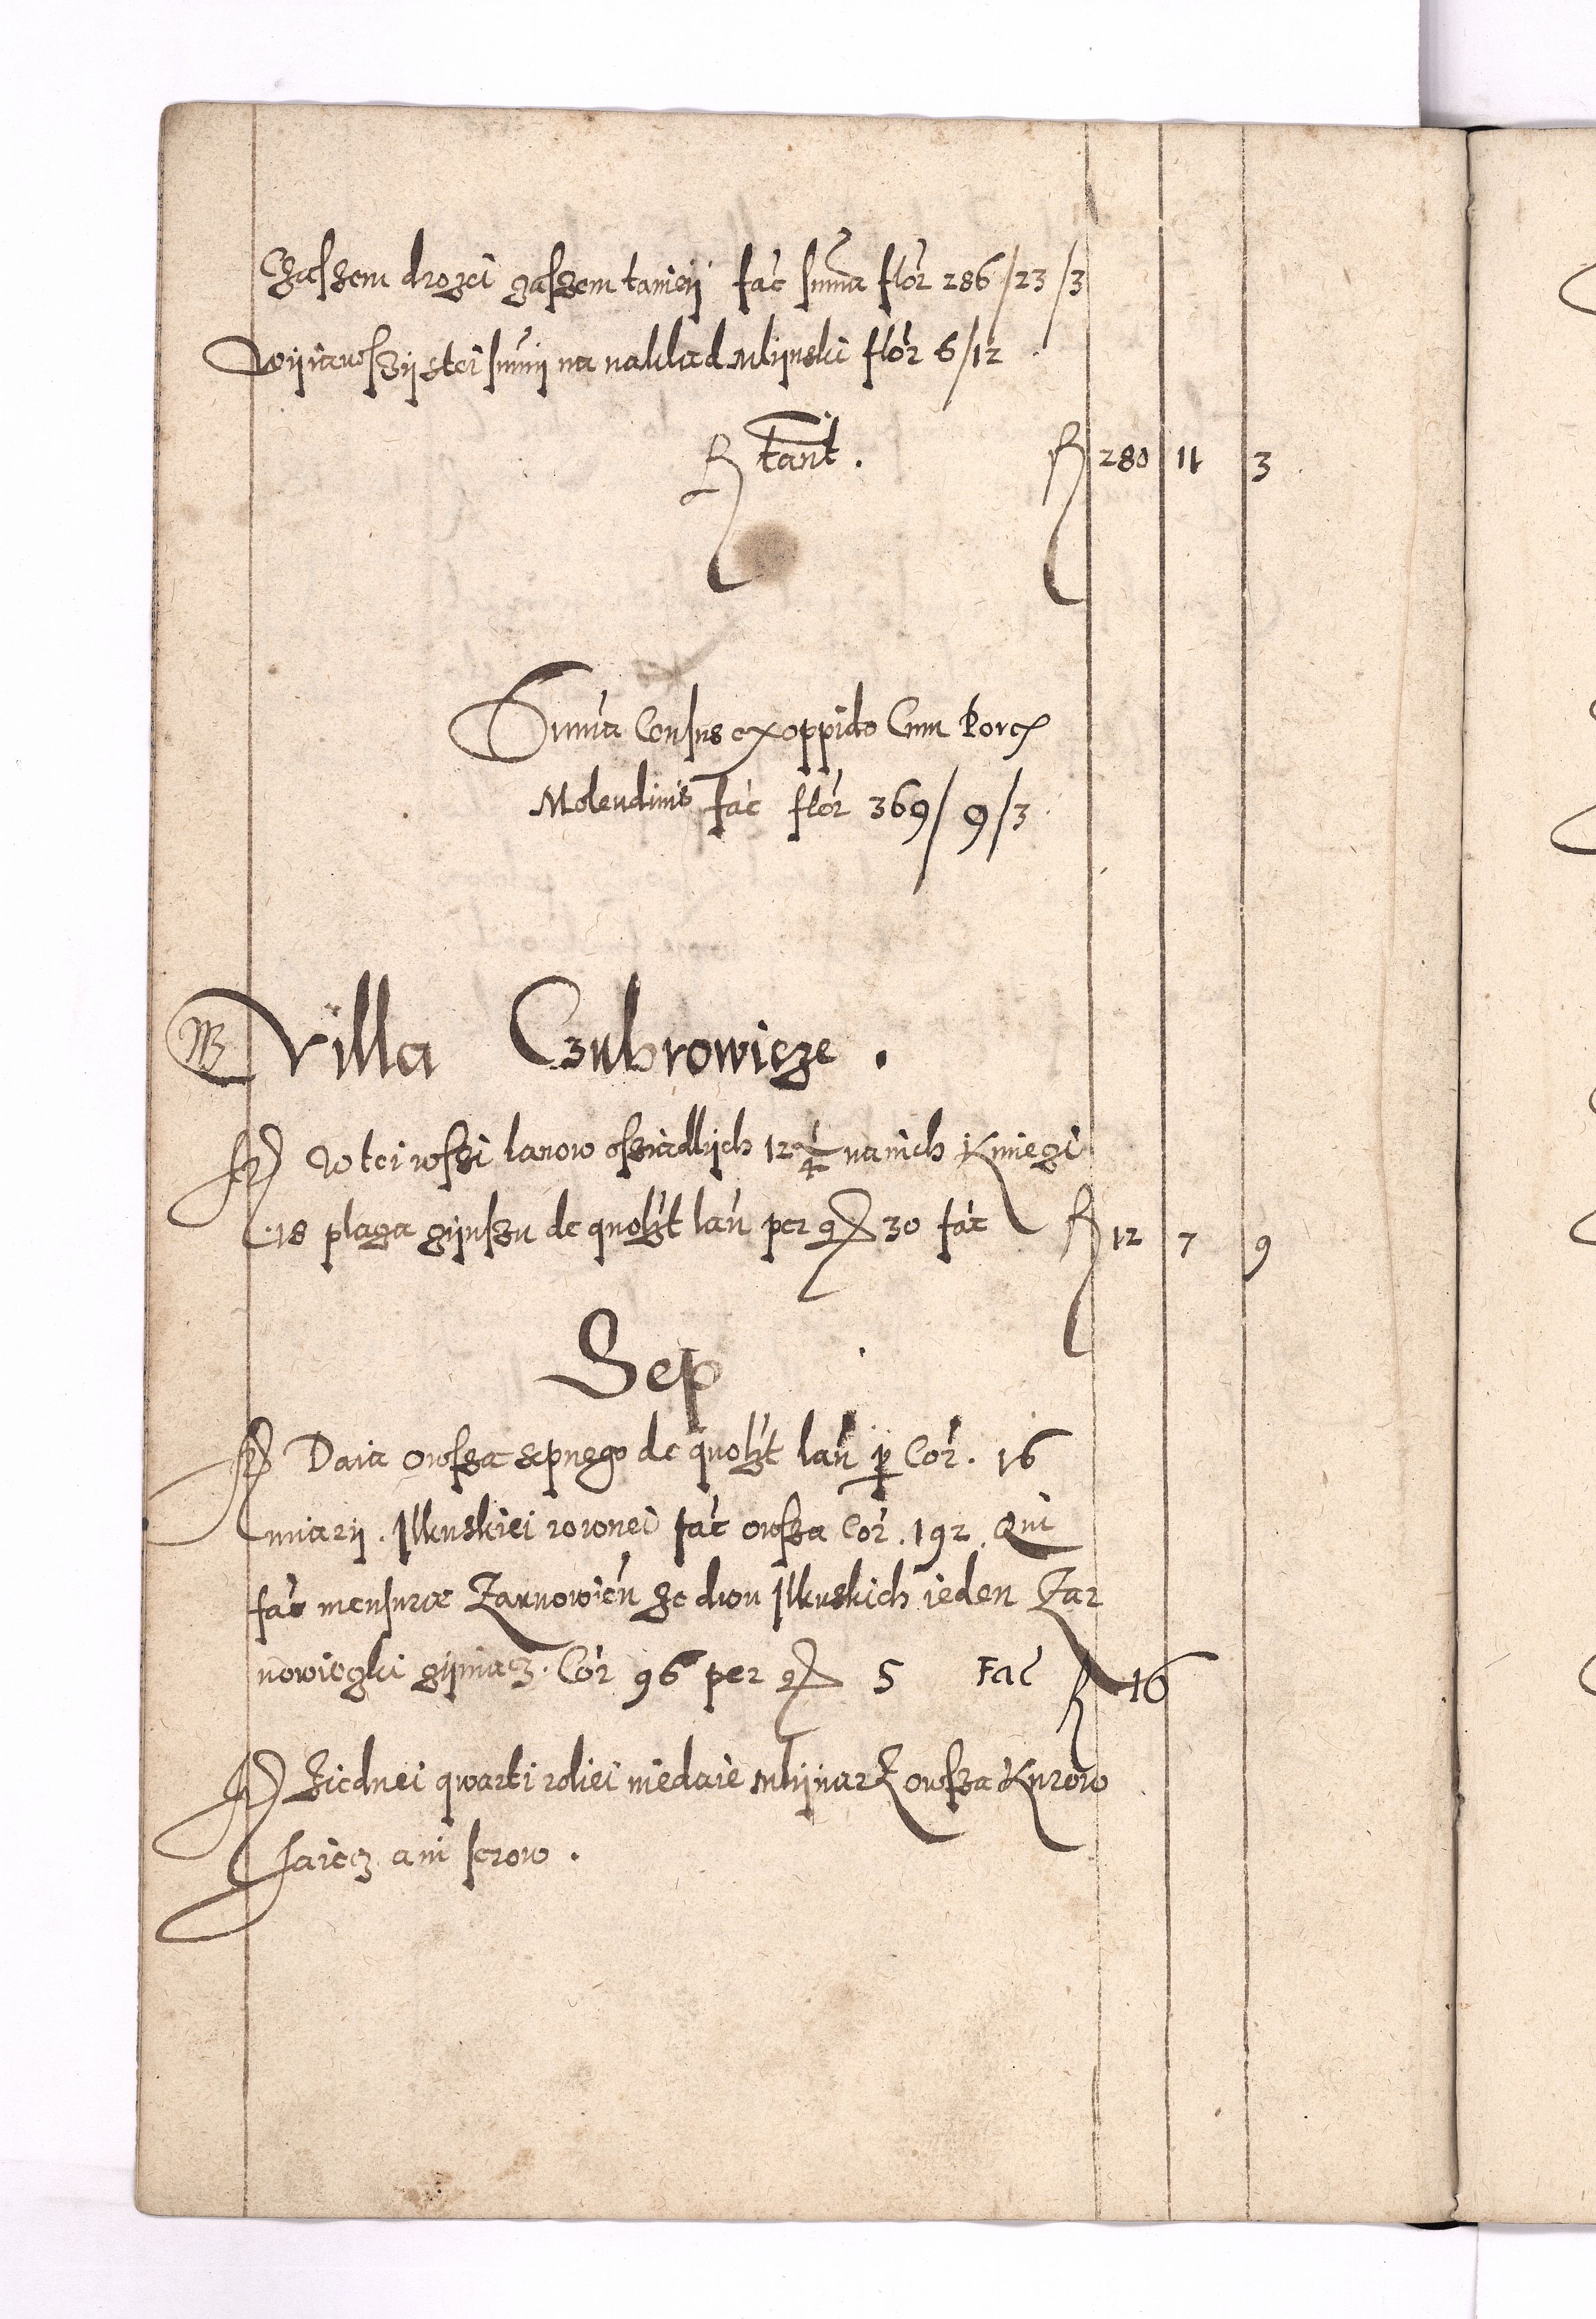 Czaſzem drozei zaſzem tanieij fac̃ sum̃a flor̃ 286/23/3
Wijiawſzij stei sum̃ij na naklad mlijnski flor̃ 6/12
Rtant. R 280 11 3
Sum̃a Census ex oppido Cum Porcꝭ
Molendinis fac̃ flor̃ 369/9/3
Villa Czubrowicze.
W tei wſzi lanow oſziadlijch 12 1/4 na nich Kmiezi
18 plaza czijnſzu de quolꝫt lan̄ per gꝶ 30 fac̃ R 12 7 9
Sep
Daia owſza sepnego de quolꝫt lan̄ ꝑ Cor̃. 16
miarij. Ilkuskiei rownei fac̃ owſza Cor̃. 192. Qui
fac̃ mensuræ Zarnowien̄ ze dwu Ilkuskich ieden Zar
nowiezki czijniacz. Cor̃ 96 per gꝶ 5 Fac̃ R 16
Ziednei qwarti roliei niedaie mlijnarz owſza Kurow
Jaiecz ani serow.